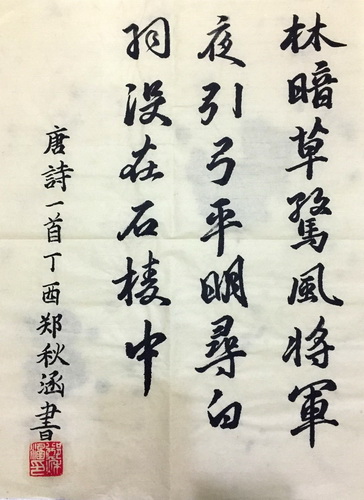 林暗草驚風將軍
夜引弓平明尋白
羽没在石棱中
唐詩一首丁酉郑秋涵書